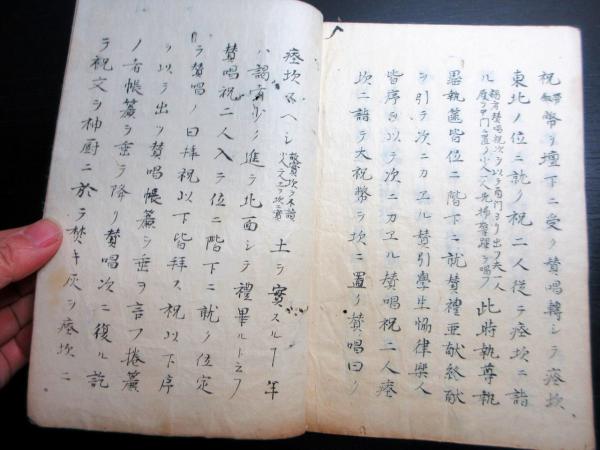 祝幣ヲ壇下ニ受ク賛唱轉シテ瘞坎
東北ノ位ニ就ク祝二人從テ瘞坎ニ詣
ル 此時執尊執
罍執篚皆位ニ階下ニ就賛禮亜献終献
ヲ引テ次ニカヱル賛引學生協律樂人
皆序ヲ以テ次ニカヱル賛唱祝二人瘞
坎ニ詣テ大祝幣ヲ坎ニ置ク賛唱曰ク
瘞坎スヘシ 土ヲ實スルヿ年
ハ謁者少ク進テ北面シテ禮畢ルト云フ
賛唱祝二人入テ位ニ階下ニ就ク位定
テ賛唱ノ曰拜祝以下皆拜ス祝以下序
ヲ以テ出ツ賛唱帳簾ヲ垂ヲ言フ捲簾
ノ者帳簾ヲ垂テ降ク賛唱次ニ復ル訖
テ祝文ヲ神厨ニ於テ焚キ灰ヲ瘞坎ニ